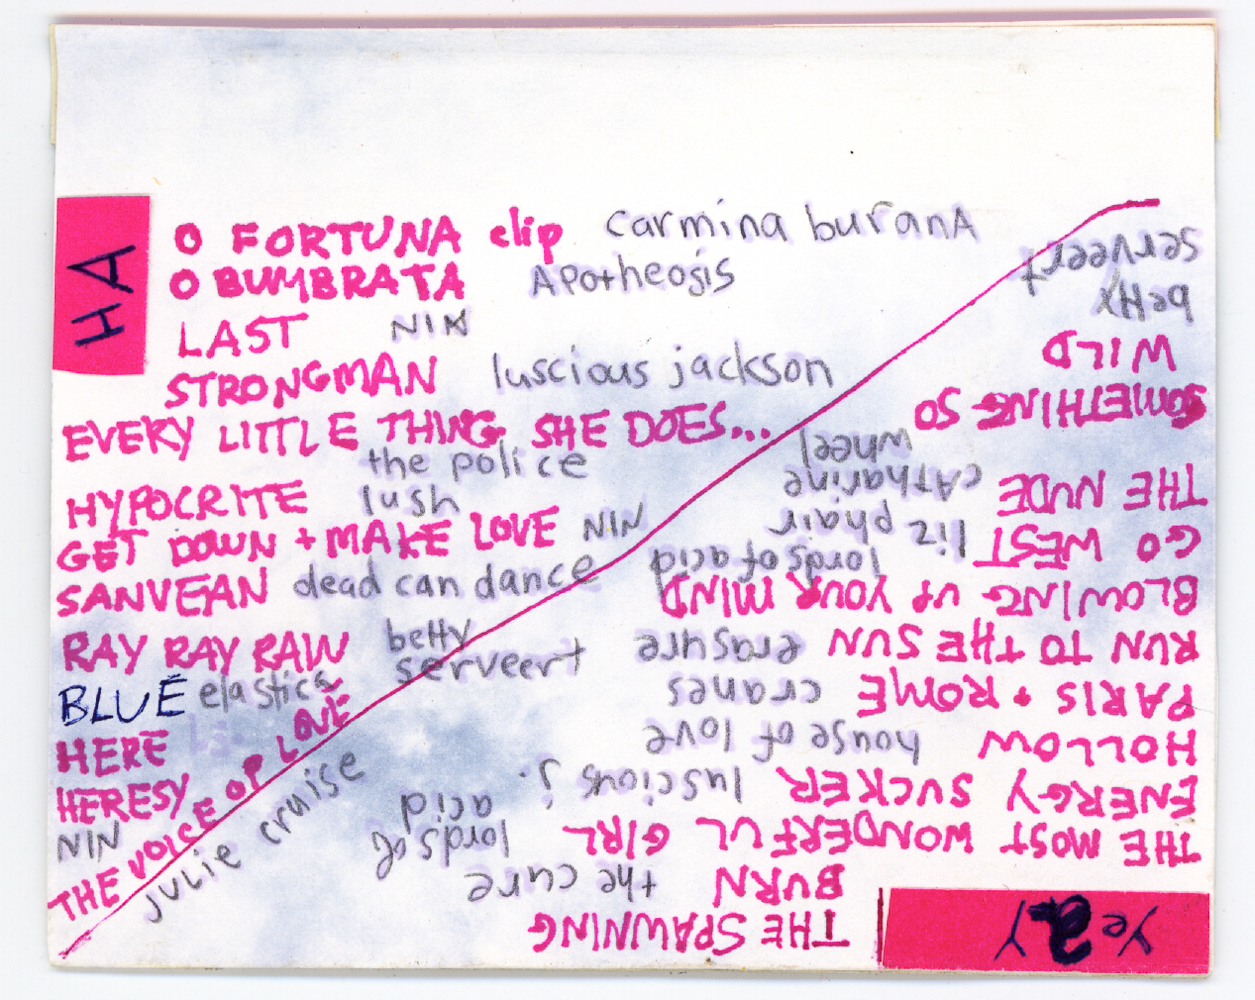 HA
O FORTUNA clip carmina buranA
O BUMBRATA APotheosis
LAST NIN
STRONGMAN luscious jackson
EVERY LITTLE THING SHE DOES...
the police
HYPOCRITE lush
GET DOWN + MAKE LOVE NIN
SANVEAN dead can dance
RAY RAY RAW betty serveert
BLUE elastica
HERE
HERESY
NIN
THE VOICE OF LOVE
julie cruise
YeaY
THE SPAWNING
BURN the cure
THE MOST WONDERFUL GIRL lords of acid
ENERGY SUCKER luscious j.
HOLLOW house of love
PARIS + ROME cranes
RUN TO THE SUN erasure
BLOWING UP YOUR MIND lords of acid
GO WEST liz phair
THE NUDE cAtharine wheel
SOMETHING SO
WILD
betty
serveert